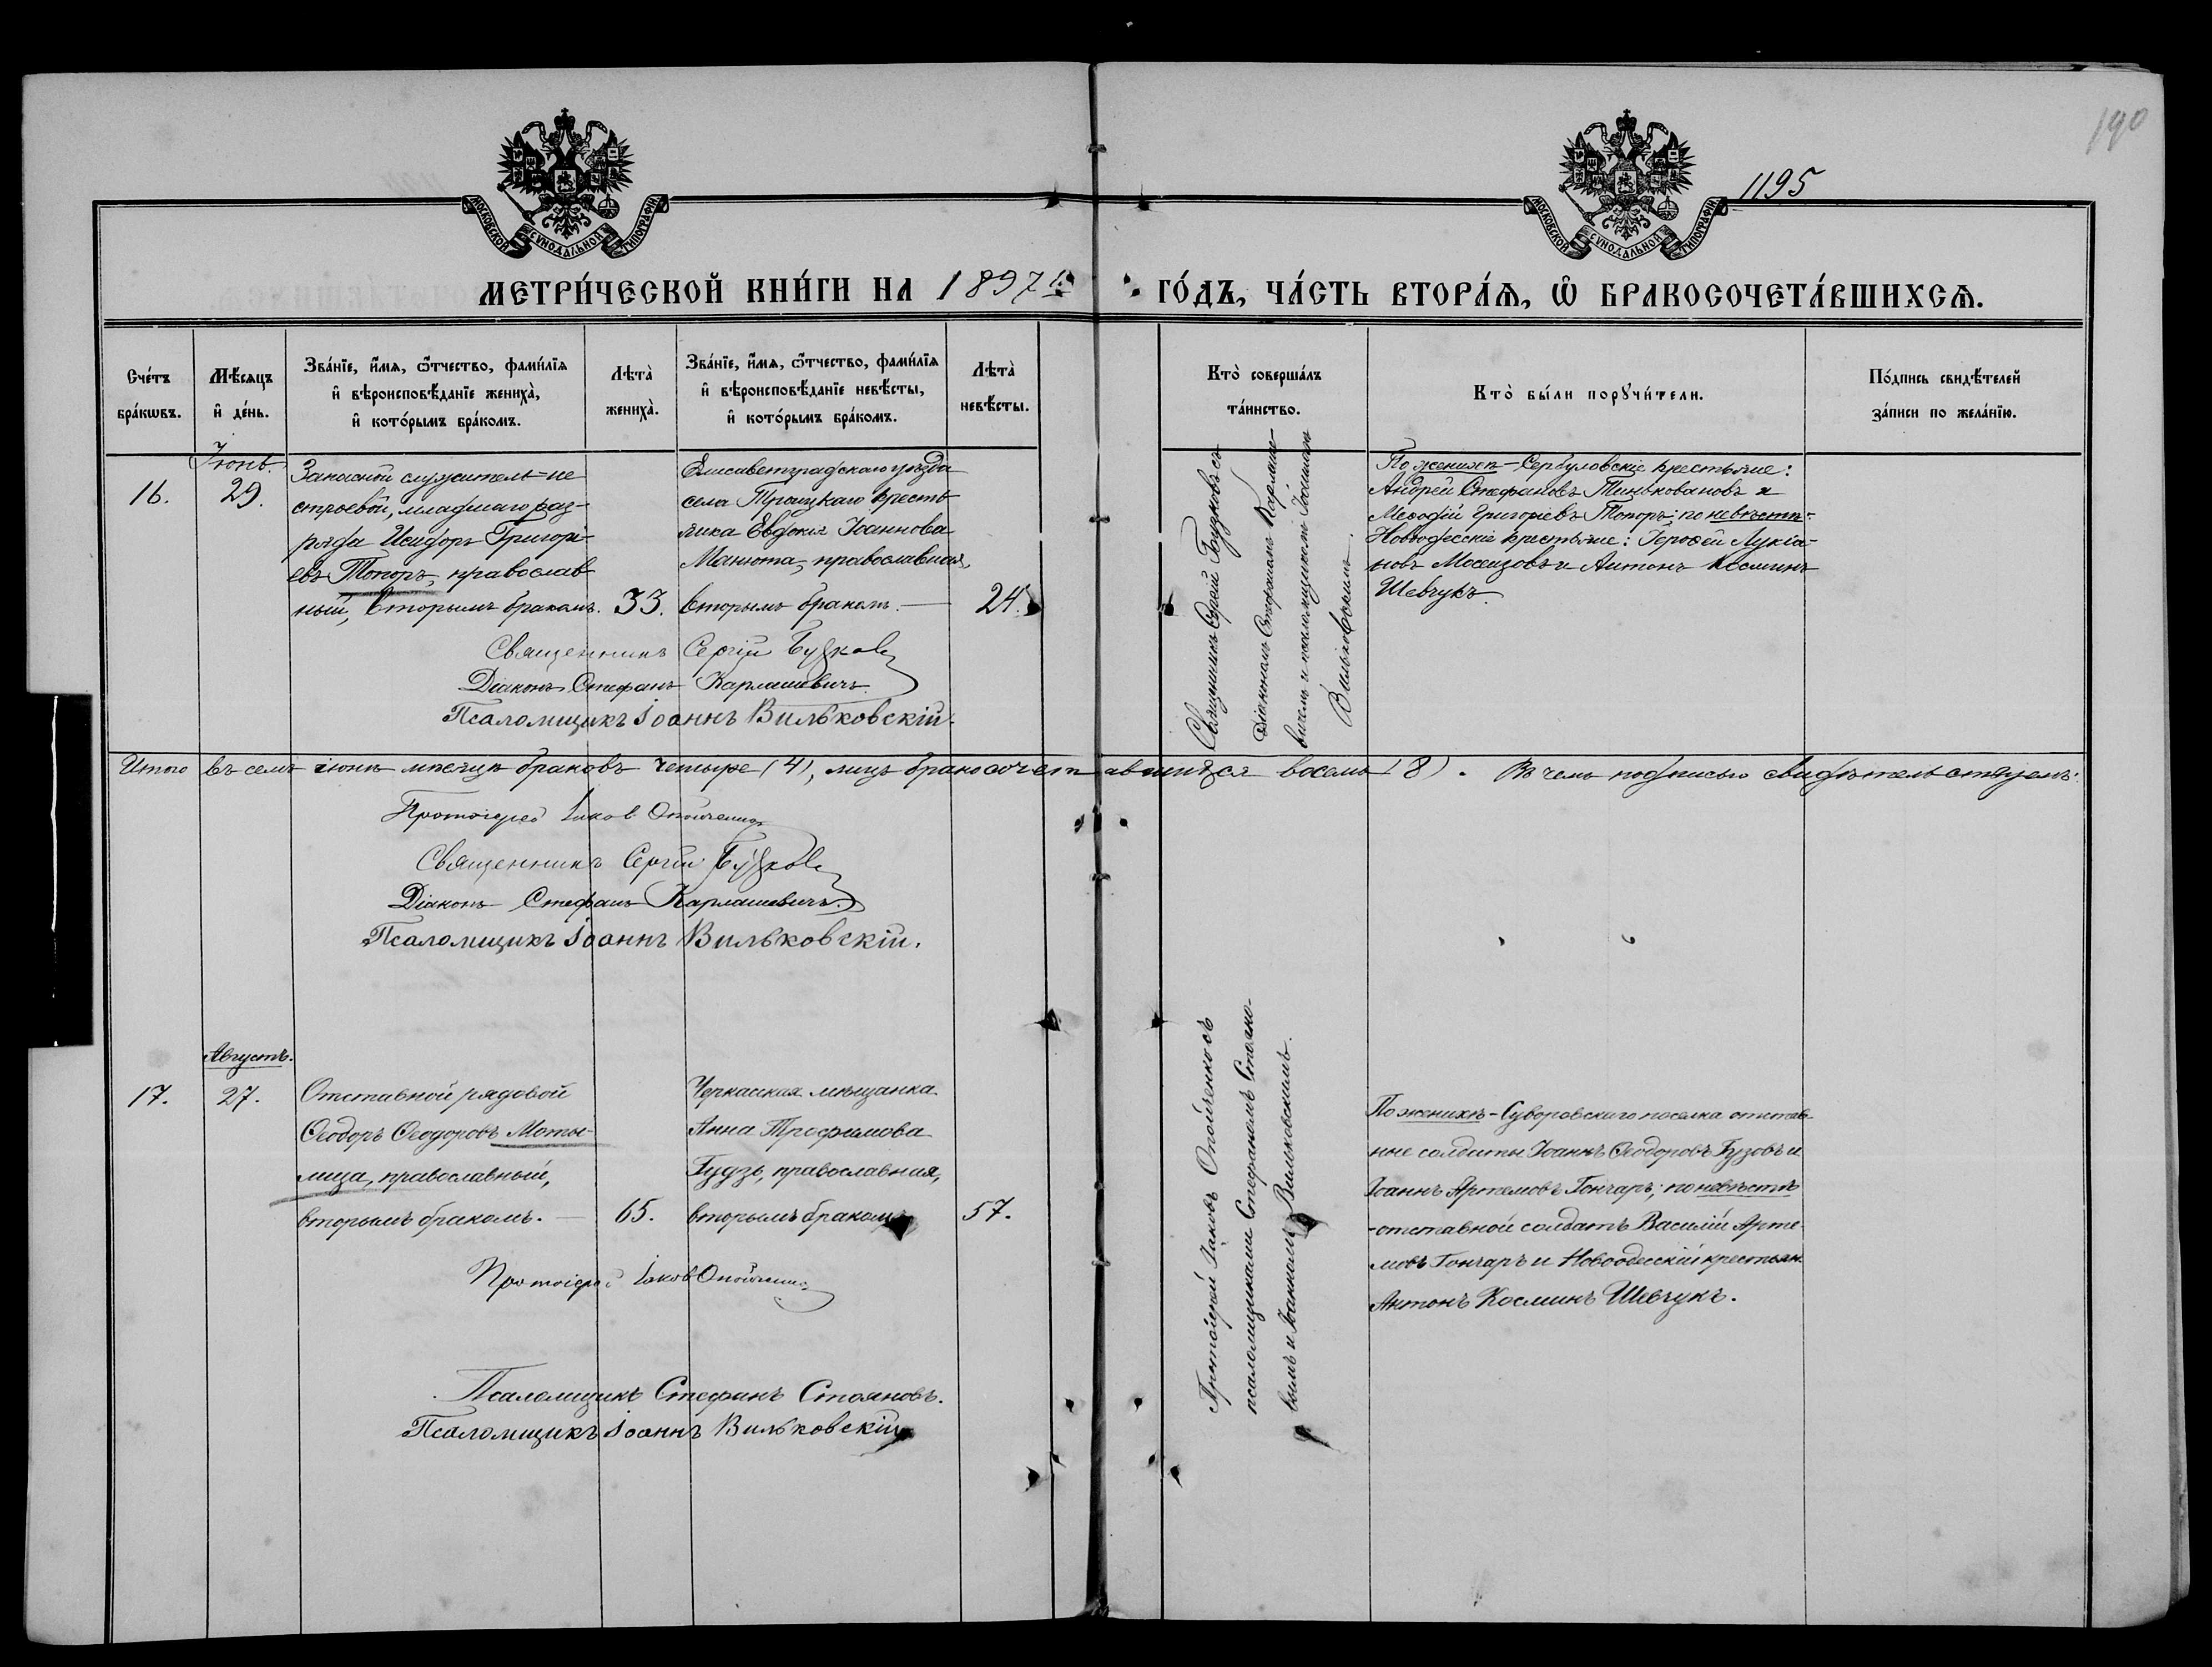 190
1195
МОСКОВСКОЙ СУНОДАЛЬНОЙ ТИПОГРАФІИ
МОСКОВСКОЙ СУНОДАЛЬНОЙ ТИПОГРАФІИ
МЕТРИ́ЧЕСКОЙ КНИ́ГИ НА 1897й ГО́ДЪ, ЧА́СТЬ ВТОРА́Ѧ, Ѽ БРАКОСОЧЕТА́ВШИХСѦ.
Сче́тъ
бра́кѡвъ.
Мѣ́сяцъ
и҆ де́нь.
Зва́нїе, и҆́мѧ, ѻ҆́тчество, фами́лїѧ
и҆ вѣроисповѣ́данїе жениха̀,
и҆ кото́рымъ бра́комъ.
Лѣта̀
жениха̀.
Зва́нїе, и҆́мѧ, ѻ҆́тчество, фами́лїѧ
и҆ вѣроисповѣ́данїе невѣ́сты,
и҆ кото́рымъ бра́комъ.
Лѣта̀
невѣ́сты.
Кто̀ соверша́лъ
та́инство.
Кто̀ бы́ли порꙋчи́тели.
По́дпись свидѣ́телей
за́писи по жела́нїю.
Іюнь.
16.
29.
Запасной служитель не
строевой, младшаго раз-
ряда Исидоръ Григорі-
евъ Топоръ, православ
ный, вторымъ бракомъ.
33.
Елисаветградскаго уѣзда
села Троицкаго кресть
янка Евдокія Іоаннова
Манюта, православная,
вторымъ бракомъ.
24.
Священникъ Сергій Бузковъ съ
Діакономъ Стефаномъ Карлаше-
вичемъ и псаломщикомъ Іоанномъ
Вильковскимъ.
По женихѣ - Сербуловскіе крестьяне:
Андрей Стефановъ Тиньковановъ и
Меѳодій Григоріевъ Топоръ; по невѣстѣ:
Новоодесскіе крестьяне: Іероѳей Лукіа-
новъ Мосензовъ и Антонъ Косминъ
Шевчукъ.
Священникъ Сергій Бузковъ
Діаконъ Стефанъ Карлашевичъ.
Псаломщикъ Іоаннъ Вильковскій.
Итого въ семъ іюнѣ мѣсяцѣ браковъ четыре (4), лицъ бракосочетавшихся восемь (8). Въ чемъ подписью свидѣтельствуемъ:
Протоіерей Іаковъ Опойченко
Священникъ Сергій Бузковъ
Діаконъ Стефанъ Карлашевичъ.
Псаломщикъ Іоаннъ Вильковскій.
Августъ.
17.
27.
Отставной рядовой
Ѳеодоръ Ѳеодоровъ Моты-
лица, православный,
вторымъ бракомъ.
65.
Черкасская мѣщанка
Анна Трофимова
Гудзь, православная,
вторымъ бракомъ
57.
Протоіерей Іаковъ Опойченко съ
псаломщиками Стефаномъ Стояно-
вымъ и Іоанномъ Вильковскимъ.
По женихѣ - Суворовскаго поселка отстав-
ные солдаты Іоаннъ Ѳеодоровъ Гузовъ и
Іоаннъ Артемовъ Гончаръ; по невѣстѣ
- отставной солдатъ Василій Арте-
мовъ Гончаръ и Новоодесскій крестьян.
Антонъ Косминъ Шевчукъ.
Протоіерей Іаковъ Опойченко
Псаломщикъ Стефанъ Стояновъ.
Псаломщикъ Іоаннъ Вильковскій